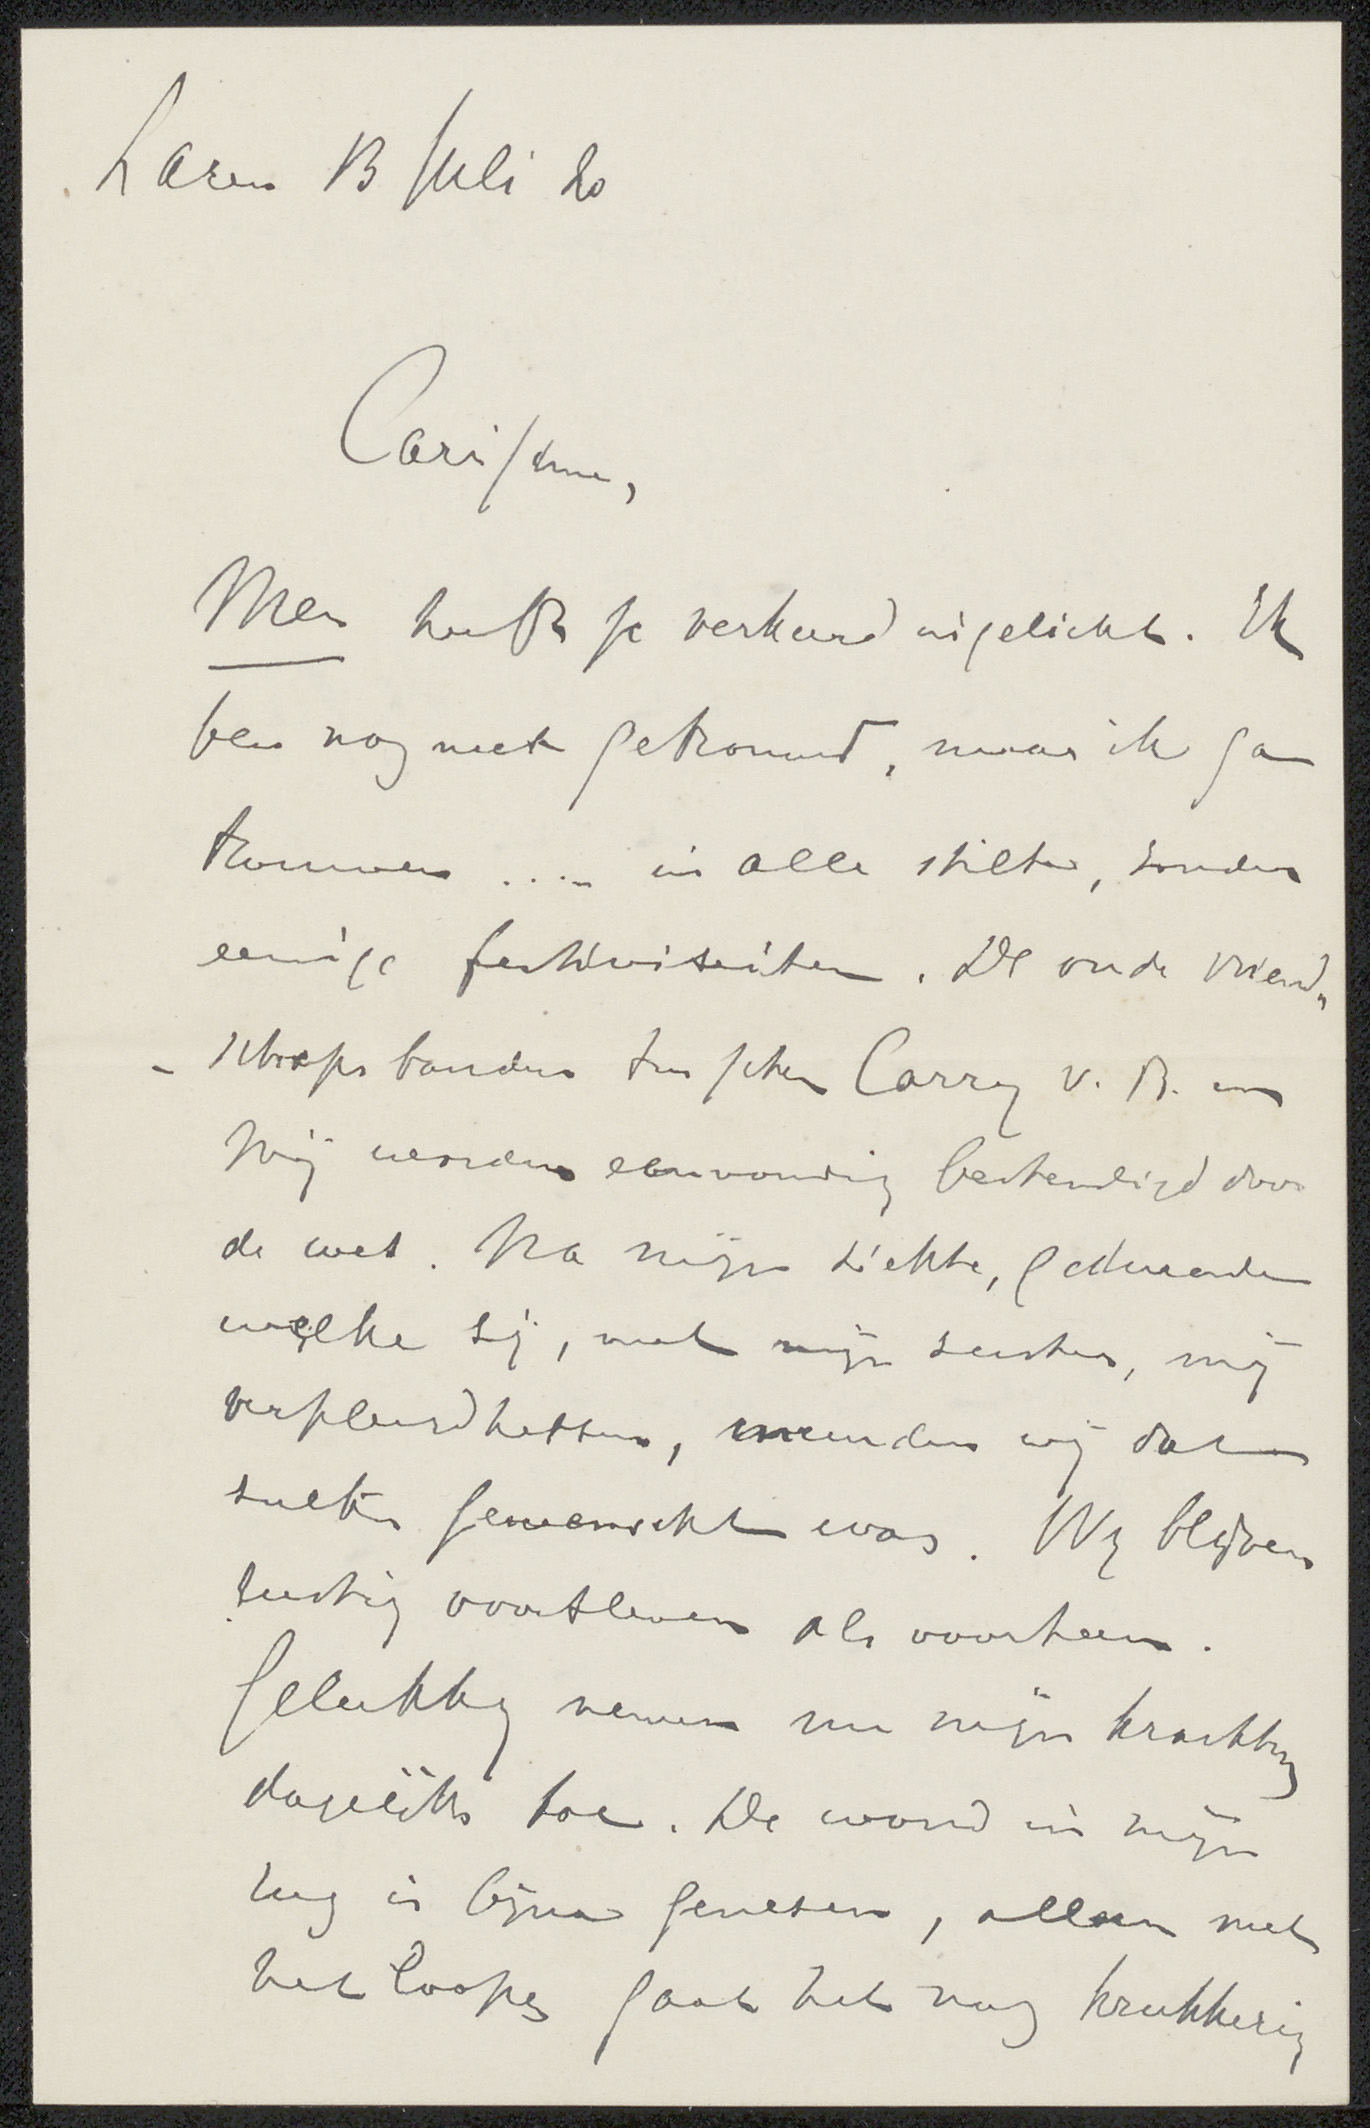 Laren 13 Juli 20
Carissime,
Men heeft je verkeerd ingelicht. Ik
ben nog niet getrouwd, maar ik ga
trouwen ..... in alle stilte, zonder
eenige festiviteiten. De oude vriend„
- schapsbanden tusschen Carry v. B. en
Mij worden eenvoudig bestendigd door
de wet. Na mijn ziekte, gedurende
welke zij, met mijn zuster, mij
verpleegd hebben, meenden wij dat
zulks gewenscht was. Wij blijven
rustig voortleven als voorheen.
Gelukkig nemen nu mijn krachten
dagelijks toe. De wond in mijn
rug is bijna genezen, alleen met
het loopen gaat het nog krukkerig